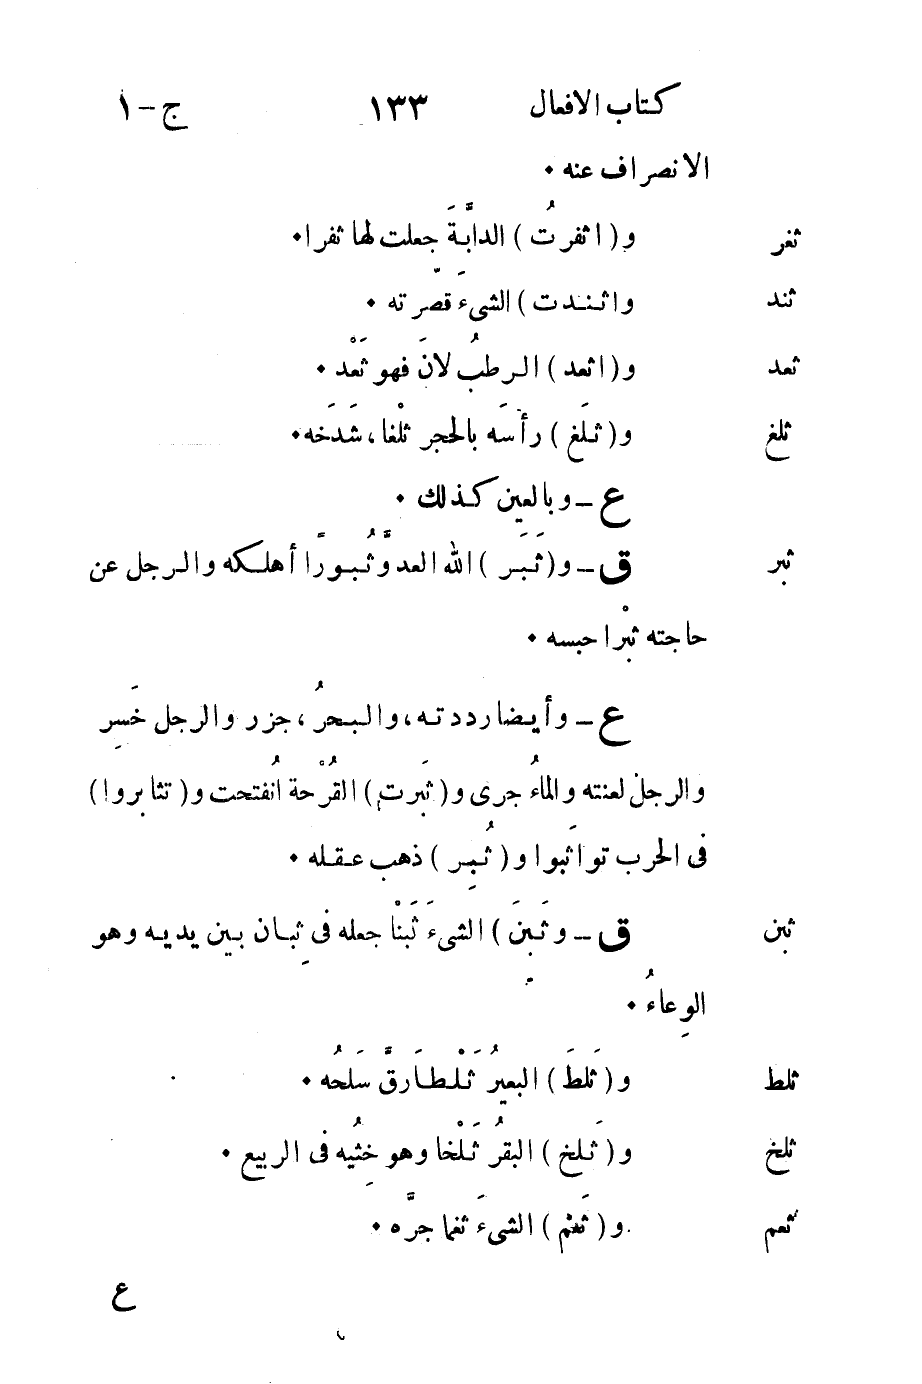 كتاب الافعال ١٣٣ ج-١
الانصراف عنه ٠
ثفر و(اثفرتُ) الدابَّةَ جعلت لها ثفرا٠
ثند واثـنـدت) الشىءَ قصّرته ٠
ثعد و(اثعد) الرطبُ لانَ فهو ثَعْد ٠
ثلغ و(ثلَغ) رأسَه بالحجر ثلْغا، شَدَخَه٠
ع – وبالعين كذلك ٠
ثبر ق – و(ثَبَر) الله العدوَّ ثُبورًا أهلكه والرجل عن
حاجته ثبْرا حبسه ٠
ع – وأيضا رددته، والبحرُ، جزر والرجل خَسِر
والرجلَ لعنته والماءُ جرى و(ثبَرت) القُرْحةُ انفتحت و(تثابروا)
فى الحرب تواثَبوا و(ثُبِر) ذهب عقله ٠
ثبن ق – وثَبَنَ) الشىءَ ثَبْنًا جعله فى ثِبان بين يديه وهو
الوِعاءُ ٠
ثلط و(ثَلَطَ) البعيرُ ثَلْطا رقَّ سَلحُه ٠
ثلخ و(ثلَخ) البقرُ ثَلْخا وهو خِثْيُه فى الربيع ٠
ثعم و(ثعَم) الشىءَ ثعما جرَّه ٠
ع